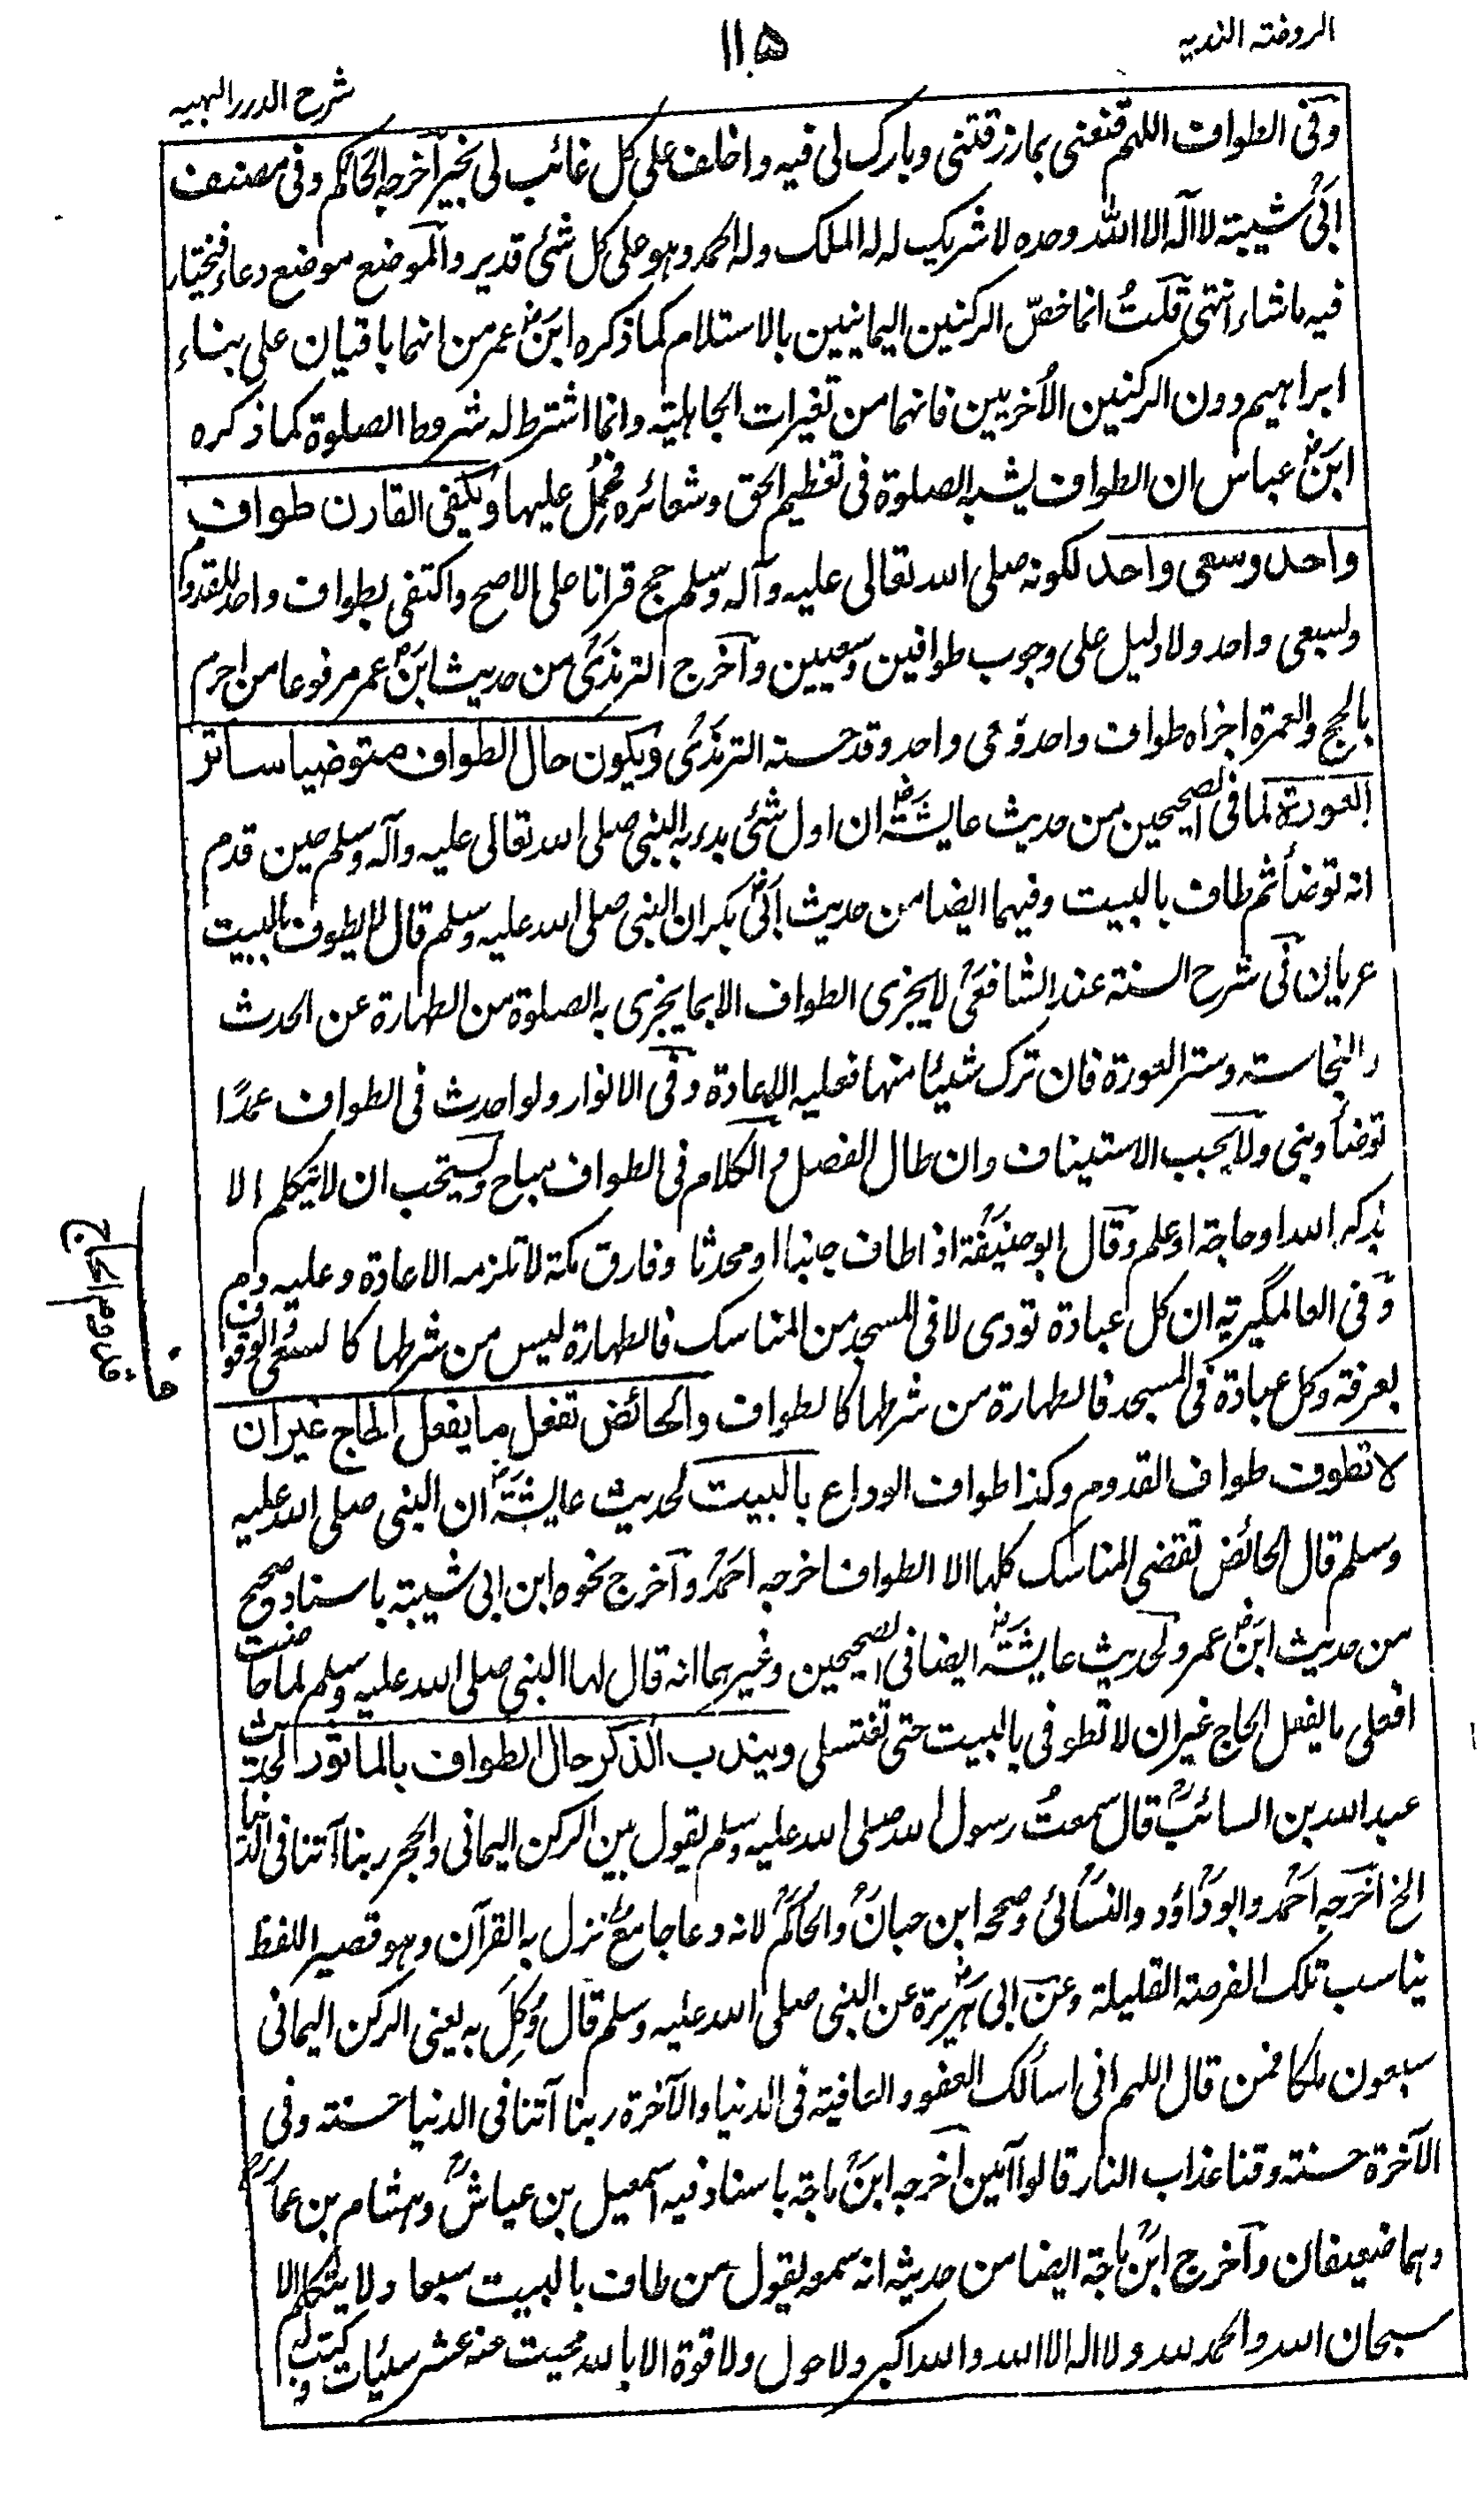 الروضته النديه
١١٥
شرح الدرر البهيه
وفى الطواف اللهم قنعنى بما رزقتنى وبارك لى فيه واخلف على كل غائب لى بخير اخرجه الحاكم وفى مصنف
ابى شيبة لا اله الا الله وحده لا شريك له له الملك وله الحمد وهو على كل شئ قدير والموضع موضع دعاء فيختار
فيه ما شاء انتهى قلتُ انما خصّ الركنين اليمانيين بالاستلام كما ذكره ابن عمر من انهما باقيان على بناء
ابراهيم دون الركنين الأخريين فانهما من تغيرات الجاهلية وانما اشترط له شروط الصلوة كما ذكره
ابن عباس ان الطواف يشبه الصلوة فى تعظيم الحق وشعائره فحُمِلُ عليها ويكفى القارن طواف
واحد وسعى واحد لكونه صلى الله تعالى عليه وآله وسلم حج قرانا على الاصح واكتفى بطواف واحد للقدوم
وبسعى واحد ولا دليل على وجوب طوافين وسعيين وآخرج الترمذى من حديث ابن عمر مرفوعا من احرم
بالحج والعمرة اجزاه طواف واحد وسعى واحد وقد حسنه الترمذى ويكون حال الطواف متوضيا ساتر
العورة لما فى الصحيحين من حديث عايشة ان اول شئ بدء به النبى صلى الله تعالى عليه وآله وسلم حين قدم
انه توضأ ثم طاف بالبيت وفيهما ايضا من حديث ابى بكر ان النبى صلى الله عليه وسلم قال لا يطوف بالبيت
عريان فى شرح السنة عند الشافعى لا يجزى الطواف الا بما يجزى به الصلوة من الطهارة عن الحدث
والنجاسته وستر العورة فان ترك شيئا منها فعليه الاعادة وفى الانوار ولو احدث فى الطواف عمدًا
توضأ وبنى ولا يجب الاستيناف وان طال الفصل والكلام فى الطواف مباح ويستحب ان لا يتكلم الا
بذكر الله او حاجة او علم وقال ابو حنيفة اذا طاف جنبا او محدثا وفارق مكة لا تلزمه الاعادة وعليه دم
وفى العالمگيرية ان كل عبادة تودى لا فى المسجد من المناسك فالطهارة ليس من شرطها كالسعى والوقوف
بعرفة وكل عبادة فى المسجد فالطهارة من شرطها كالطواف والحائض تفعل ما يفعل الحاج غير ان
لا تطوف طواف القدوم وكذا طواف الوداع بالبيت لحديث عايشة ان النبى صلى الله عليه
وسلم قال الحائض تقضى المناسك كلها الا الطواف اخرجه احمد وآخرج نحوه ابن ابى شيبة باسناد صحيح
من حديث ابن عمر ولحديث عايشة ايضا فى الصحيحين وغيرهما انه قال لها النبى صلى الله عليه وسلم لما حاضت
افعلى ما يفعل الحاج غير ان لا تطوفى بالبيت حتى تغتسلى ويندب الذكر حال الطواف بالماثور لحديث
عبد الله بن السائب قال سمعتُ رسول الله صلى الله عليه وسلم يقول بين الركن اليمانى والحجر ربنا آتنا فى الدنيا
الخ اخرجه احمد وابو داؤد والنسائى وصححه ابن حبان والحاكم لانه دعا جامع نزل به القرآن وهو قصير اللفظ
يناسب تلك الفرصة القليلة وعن ابى هريرة عن النبى صلى الله عليه وسلم قال وُكِلَ به يعنى الركن اليمانى
سبعون ملكا فمن قال اللهم انى اسألك العفو والعافية فى الدنيا والآخرة ربنا آتنا فى الدنيا حسنته وفى
الآخرة حسنته وقنا عذاب النار قالوا آمين اخرجه ابن ماجة باسناد فيه اسمعيل بن عياش وهشام بن عمار
وهما ضعيفان وآخرج ابن ماجة ايضا من حديثه انه سمعه يقول من طاف بالبيت سبعا ولا يتكلم الا
سبحان الله والحمد لله ولا اله الا الله والله اكبر ولا حول ولا قوة الا بالله محيت عنه عشر سيئات وكتب له